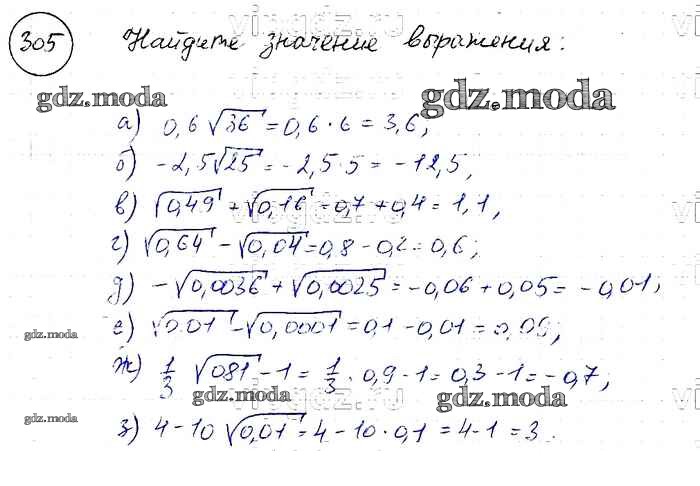 305 Найдите значение выражения:
gdz.moda gdz.moda
а) 0,6 √36 = 0,6 · 6 = 3,6;
б) -2,5√25 = -2,5·5 = -12,5,
в) √0,49 + √0,16 = 0,7 + 0,4 = 1,1,
г) √0,64 - √0,04 = 0,8 - 0,2 = 0,6;
д) -√0,0036 + √0,0025 = -0,06 + 0,05 = -0,01;
gdz.moda е) √0.01 - √0,0001 = 0,1 - 0,01 = 0,09;
ж) 1/3 √081 - 1 = 1/3 · 0,9 - 1 = 0,3 - 1 = -0,7;
gdz.moda gdz.moda
gdz.moda
з) 4 - 10 √0,01 = 4 - 10 · 0,1 = 4 - 1 = 3.